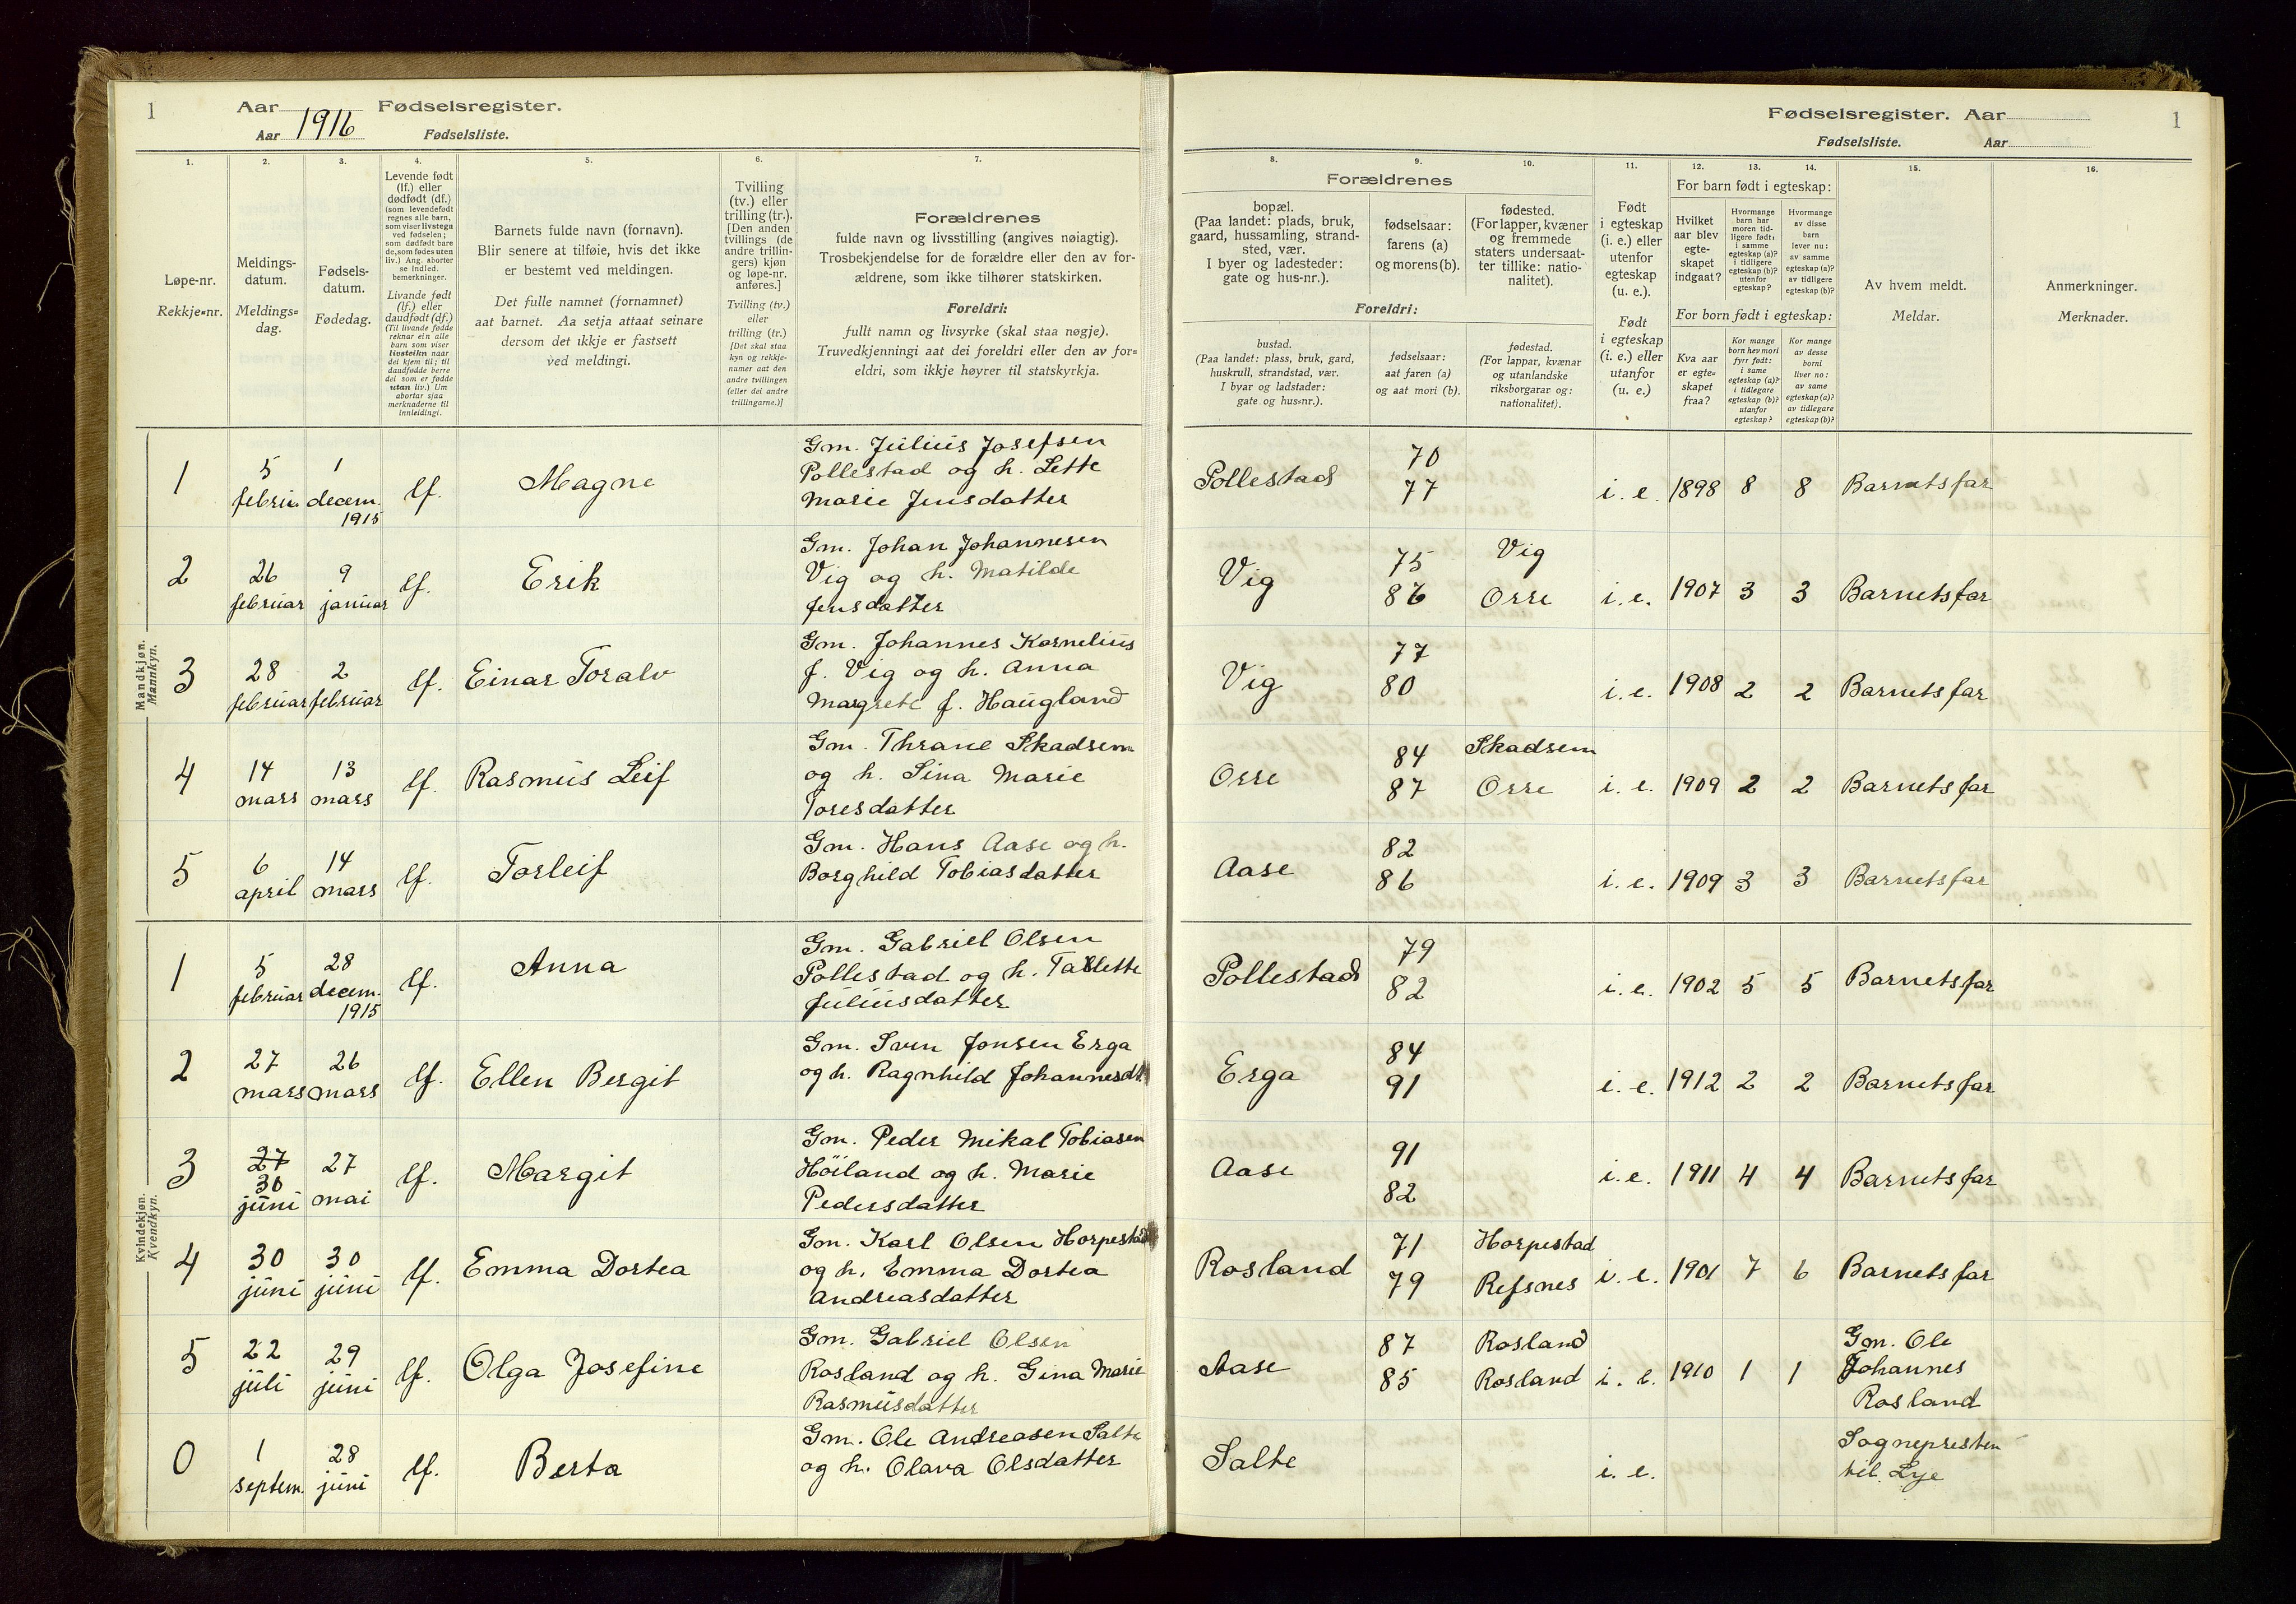 1
Aar 1916 Fødselsregister.
Aar Fødselsliste.
1.
2.
3.
4.
5.
6.
7.
Løpe-nr.
Rekkje-nr.
Meldings-
datum.
Meldings-
dag.
Fødsels-
datum.
Fødedag.
Levende født
(lf.) eller
dødfødt (df.)
(som levendefødt
regnes alle barn,
som viser livstegn
ved fødselen;
som dødfødt bare
de, som fødes uten
liv.) Ang. aborter
se indled.
bemerkninger.
Livande født
(lf.) eller
daudfødt (df.)
(Til livande fødde
reknar ein alle
barn som viser
livsteikn naar
dei kjem til; til
daudfødde berre
dei som er fødde
utan liv.) Um
abortar sjaa
merknaderne til
innleidingi.
Barnets fulde navn (fornavn).
Blir senere at tilføie, hvis det ikke
er bestemt ved meldingen.
Det fulle namnet (fornamnet)
aat barnet. Aa setja attaat seinare
dersom det ikkje er fastsett
ved meldingi.
Tvilling
(tv.) eller
trilling (tr.).
[Den anden
tvillings (de
andre trillin-
gers) kjøn
og løpe-nr.
anføres.]
Tvilling (tv.)
eller
trilling (tr.)
[Det skal staa
kyn og rekkje-
numer aat den
andre tvillingen
(eller dei andre
trillingarne.)]
Forældrenes
fulde navn og livsstilling (angives nøiagtig).
Trosbekjendelse for de forældre eller den av for-
ældrene, som ikke tilhører statskirken.
Foreldri:
fullt namn og livsyrke (skal staa nøgje).
Truvedkjenningi aat dei foreldri eller den av for-
eldri, som ikkje høyrer til statskyrkja.
Fødselsregister. Aar
1
Fødselsliste. Aar
8.
9.
10.
11.
12.
13.
14.
15.
16.
Forældrenes
bopæl.
(Paa landet: plads, bruk,
gaard, hussamling, strand-
sted, vær.
I byer og ladesteder:
gate og hus-nr.).
fødselsaar:
farens (a)
og morens (b).
fødested.
(For lapper, kvæner
og fremmede
staters undersaat-
ter tillike: natio-
nalitet).
Foreldri:
bustad.
(Paa landet: plass, bruk, gard,
huskrull, strandstad, vær.
I byar og ladstader:
gate og hus-nr.).
fødselsaar:
aat faren (a)
og aat mori (b).
fødestad.
(For lappar, kvænar
og utanlandske
riksborgarar og:
nationalitet).
Født
i egteskap
(i. e.) eller
utenfor
egteskap
(u. e.).
Født
i egteskap
(i. e.) eller
utanfor
(u. e.)
For barn født i egteskap:
Hvilket
aar blev
egte-
skapet
indgaat?
Hvormange
barn har
moren tid-
ligere født:
i samme
egteskap (a)?
i tidligere
egteskap (b)?
utenfor
egteskap?
Hvormange
av disse
barn
lever nu:
av samme
egteskap (a)?
av tidligere
egteskap (b)?
For born født i egteskap:
Kva aar
er egte-
skapet
fraa?
Kor mange
born hev mori
fyrr født:
i same
egteskap (a)?
i tidlegare
egteskap (b)?
utanfor
egteskap?
Kor mange
av desse
borni
liver no:
av same
egteskap (a)?
av tidlegare
egteskap (b)?
Av hvem meldt.
Meldar.
Anmerkninger.
Merknader.
Mandkjøn.
Mannkyn.
1 5 februa 1 decem. 1915 lf. Magne
Gm. Julius Josefsen
Pollestad og h. Lette
Marie Jensdatter
Pollestad 70 77 i. e. 1898 8 8 Barnetsfar
2 26 februar 9 januar lf. Erik
Gm. Johan Johannesen
Vig og h. Matilde
Jensdatter
Vig 75 86 Vig Orre i. e. 1907 3 3 Barnetsfar
3 28 februar 2 februar lf. Einar Toralv
Gm. Johannes Kornelius
f. Vig og h. Anna
Margrete f. Haugland
Vig 77 80 i. e. 1908 2 2 Barnetsfar
4 14 mars 13 mars lf. Rasmus Leif
Gm. Thrane Skadsem
og h. Sina Marie
Toresdatter
Orre 84 87 Skadsem Orre i. e. 1909 2 2 Barnetsfar
5 6 april 14 mars lf. Torleif
Gm. Hans Aase og h.
Borghild Tobiasdatter
Aase 82 86 i. e. 1909 3 3 Barnetsfar
Kvindekjøn.
Kvendkyn.
1 5 februar 28 decem. 1915 lf. Anna
Gm. Gabriel Olsen
Pollestad og h. Tallette
Juliusdatter
Pollestad 79 82 i. e. 1902 5 5 Barnetsfar
2 27 mars 26 mars lf. Ellen Bergit
Gm. Sven Jonsen Erga
og h. Ragnhild Johannesdt
Erga 84 91 i. e. 1912 2 2 Barnetsfar
3 27 30 juni 27 mai lf. Margit
Gm. Peder Mikal Tobiasen
Höiland og h. Marie
Pedersdatter
Aase 91 82 i. e. 1911 4 4 Barnetsfar
4 30 juni 30 juni lf. Emma Dortea
Gm. Karl Olsen Horpestad
og h. Emma Dortea
Andreasdatter
Rosland 71 79 Horpestad Refsnes i. e. 1901 7 6 Barnetsfar
5 22 juli 29 juni lf. Olga Josefine
Gm. Gabriel Olsen
Rosland og h. Gina Marie
Rasmusdatter
Aase 87 85 Rosland Rosland i. e. 1910 1 1 Gm. Ole
Johannes
Rosland
0 1 septem. 28 juni lf. Berta
Gm. Ole Andreasen Salte
og h. Olava Olsdatter
Salte i. e. Sognepresten
til Lye